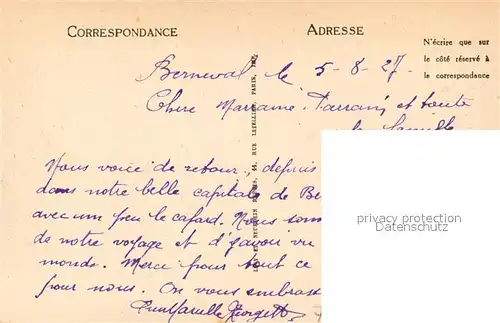 CORRESPONDANCE
ADRESSE
N'écrire que sur
le côté réservé à
la correspondance
Berneval le 5-8-27.
Chère Marraine, Parrain et toute
la famille
Nous voice de retour, depuis
dans notre belle capitale de Be
avec un peu le cafard. Nous som
de notre voyage et d'avoir vu
monde. Merci pour tout ce
pour nous. On vous embrass
privacy protection
AnsichtskartenCenter